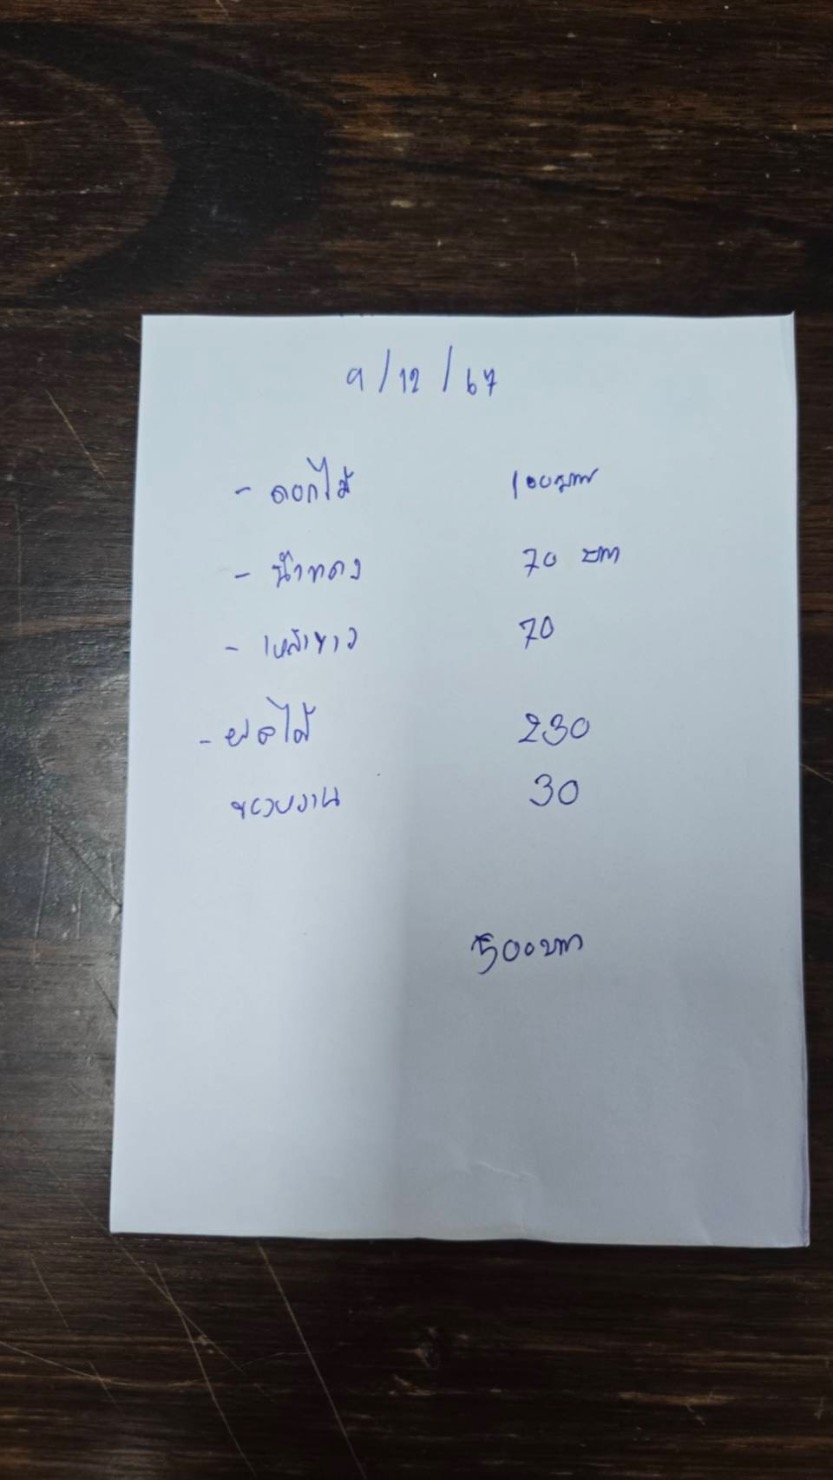 9/12/67
- ดอกไม้ 100บาท
- น้ำแดง 70 บาท
- เหล้าขาว 70
- ผลไม้ 230
ของหวาน 30
500บาท